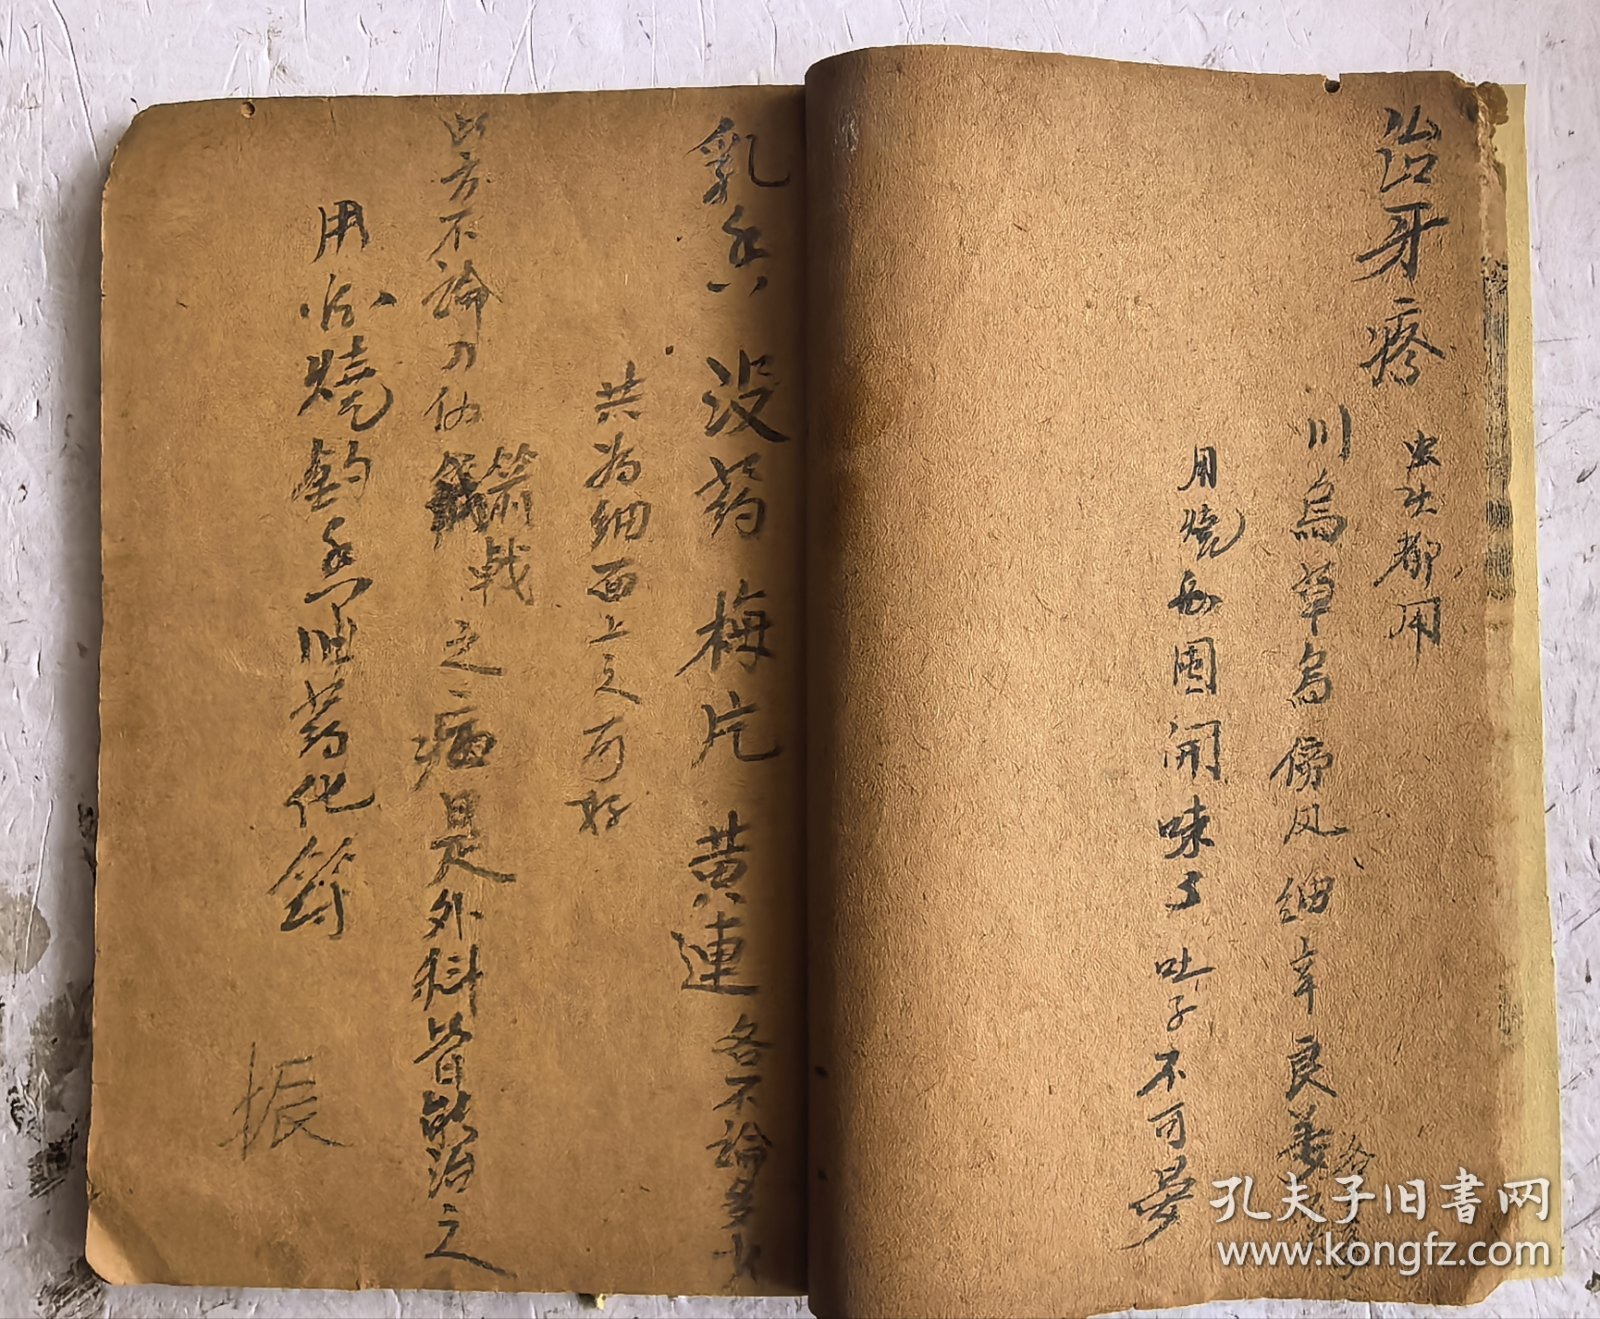 治牙疼
虫牙都用
川烏草烏傍风细辛良姜各
用烧
囤闹味了吐子不可晏
乳香 没药 梅片 黄連 各不論多少
共為细面上之可好
此方不論刀伤
箭戟之病是外科皆能治之
用
燒
香油药化
振
孔夫子旧书网
www.kongfz.com